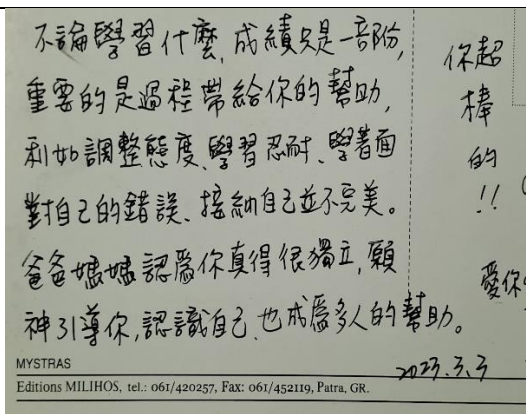 不論學習什麼,成績只是一部份,
重要的是過程帶給你的幫助,
利如調整態度、學習忍耐、學著面
對自己的錯誤、接納自己並不完美。
爸爸媽媽認爲你真得很獨立,願
神引導你,認識自己,也成爲多人的幫助。
2023.3.3
你超
棒
的
!!
愛你
MYSTRAS
Editions MILIHOS, tel.: 061/420257, Fax: 061/452119, Patra, GR.